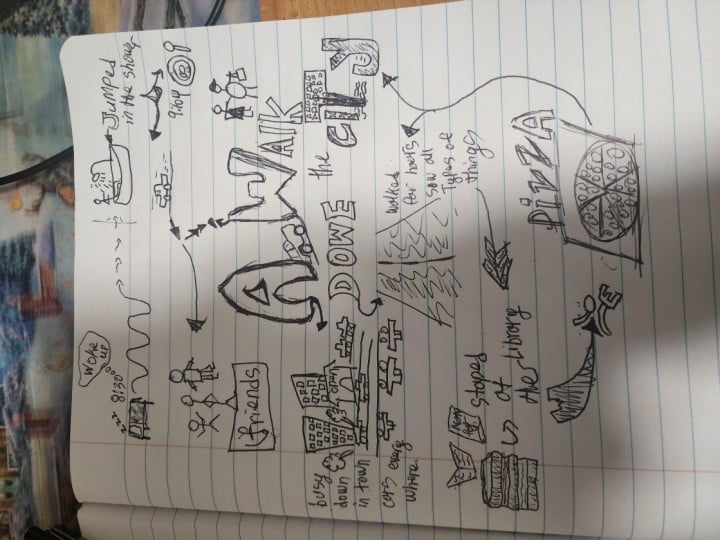 Woke
up
zzz 8:30
Jumped
in the shower
9:04
friends
A WAlk
DOWE the CITY
busy
down
in town
walked
for hours
saw all
Types of
things
Stoped
at
the Library
PIZZA